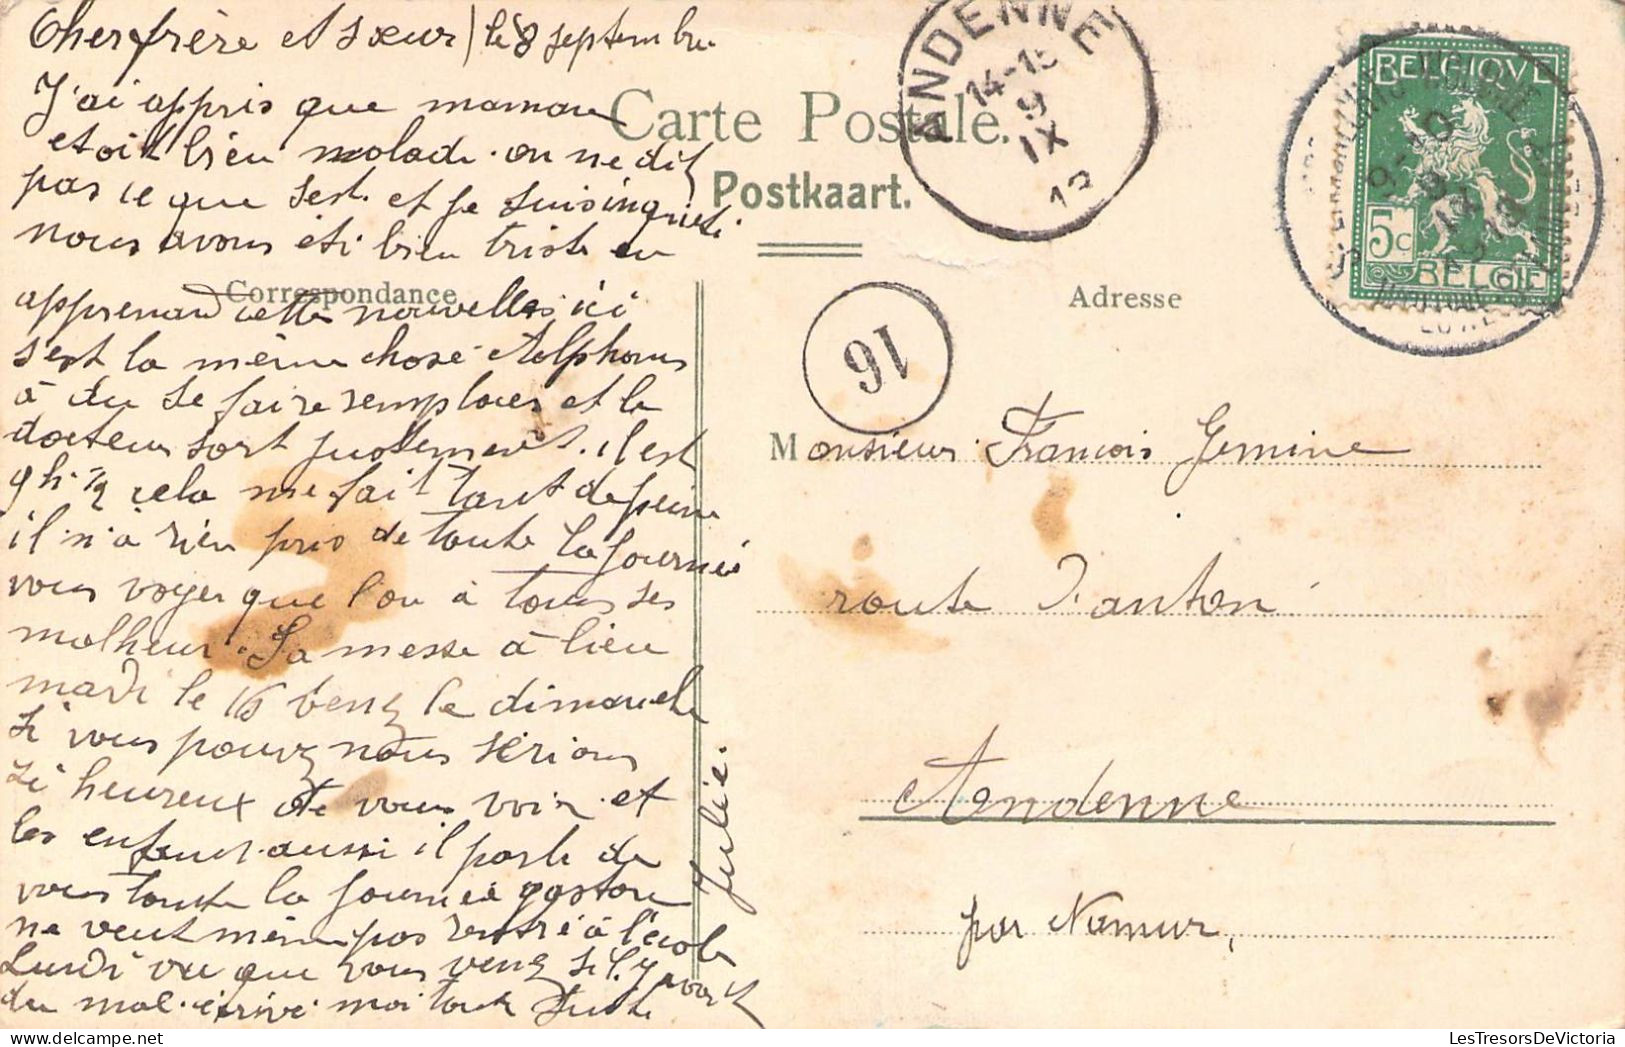 Cher frère et sœur) le 8 septembre
J'ai appris que maman
etait bien malade. on ne dit
pas ce que sest. et je suis inquiete
nous avons été bien triste en
apprenant cette nouvelles ici
s'est la même chose Alphons
à du se faire remplacer et le
docteur sort justement. il est
9h. 1/2 cela me fait tant de peine
il n'a rien pris de toute la journée
vous voyer que l'on a tous ses
malheur. La messe à lieu
mardi le 16 venez le dimanche
si vous pouvez nous serions
si heureux de vous voir et
les enfants aussi il parle de
vous toute la journée gaston
ne veut même pas rentré à l'école
Lundi vu que vous venez s'il y avait
du mal. écrivé moi tout suite
Julie.
Carte Postale.
Postkaart.
Correspondance
Adresse
ANDENNE
14-15
9
IX
13
16
BELGIQUE
5c
BELGIE
Monsieur François Gemine
route d'anton
Andenne
par Namur,
LesTresorsDeVictoria.com